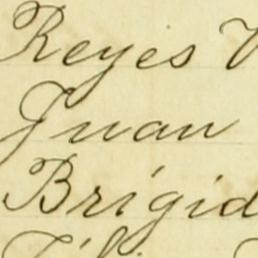 Reyes V
Juan
Brígid